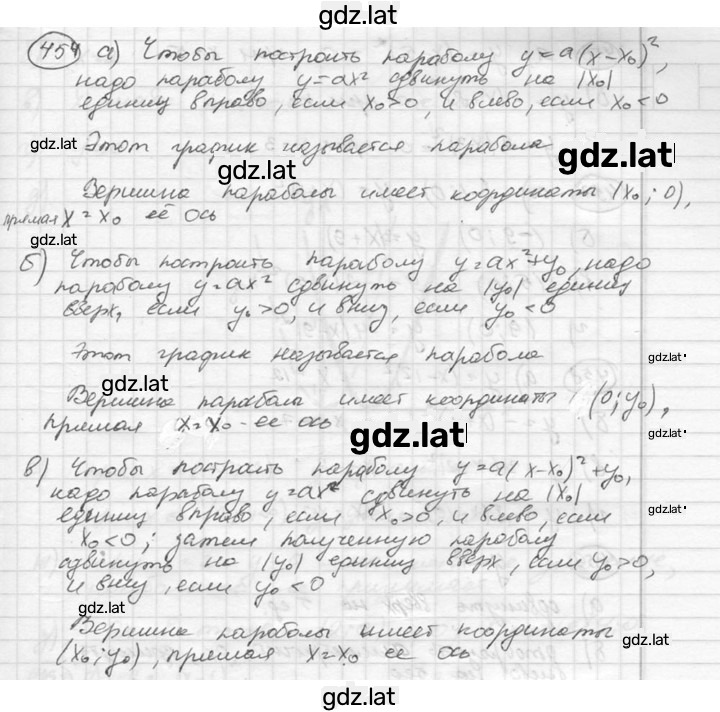 gdz.lat
454 а) Чтобы построить параболу y=a(x-x₀)²,
надо параболу y=ax² сдвинуть на |x₀|
единиц вправо, если x₀>0, и влево, если x₀<0
gdz.lat
Этот график называется парабола
gdz.lat
gdz.lat
Вершина параболы имеет координаты (x₀; 0),
прямая x=x₀ её ось
gdz.lat
б) Чтобы построить параболу y=ax²+y₀, надо
параболу y=ax² сдвинуть на |y₀| единиц
вверх, если y₀>0, и вниз, если y₀<0
Этот график называется парабола
gdz.lat
gdz.lat
Вершина парабола имеет координаты (0; y₀),
прямая x=x₀ - её ось
gdz.lat
gdz.lat
в) Чтобы построить параболу y=a(x-x₀)²+y₀,
надо параболу y=ax² сдвинуть на |x₀|
единиц вправо, если x₀>0, и влево, если
gdz.lat
x₀<0; затем полученную параболу
сдвинуть на |y₀| единиц вверх, если y₀>0,
и вниз, если y₀<0
gdz.lat
gdz.lat
Вершина параболы имеет координаты
gdz.lat
(x₀; y₀), прямая x=x₀ её ось
gdz.lat